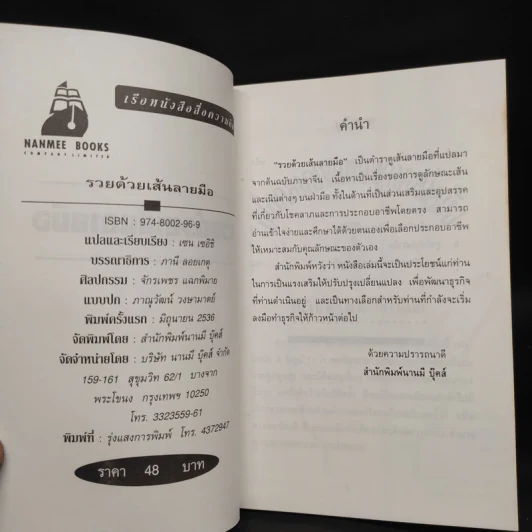 NANMEE BOOKS
COMPANY LIMITED
เรือหนังสือสื่อความ
รวยด้วยเส้นลายมือ
ISBN : 974-8002-96-9
แปลและเรียบเรียง : เชน เขอิชิ
บรรณาธิการ : ภานี ลอยเกตุ
ศิลปกรรม : จักรเพชร แฉกพิมาย
แบบปก : ภาณุวัฒน์ วงษามาตย์
พิมพ์ครั้งแรก : มิถุนายน 2536
จัดพิมพ์โดย : สำนักพิมพ์นานมี บุ๊คส์
จัดจำหน่ายโดย : บริษัท นานมี บุ๊คส์ จำกัด
159-161 สุขุมวิท 62/1 บางจาก
พระโขนง กรุงเทพฯ 10250
โทร. 3323559-61
พิมพ์ที่ : รุ่งแสงการพิมพ์ โทร. 4372947
ราคา 48 บาท
คำนำ
"รวยด้วยเส้นลายมือ" เป็นตำราดูเส้นลายมือที่แปลมา
จากต้นฉบับภาษาจีน เนื้อหาเป็นเรื่องของการดูลักษณะเส้น
และเนินต่างๆ บนฝ่ามือ ทั้งในด้านที่เป็นส่วนเสริมและอุปสรรค
ที่เกี่ยวกับโชคลาภและการประกอบอาชีพโดยตรง สามารถ
อ่านเข้าใจง่ายและศึกษาได้ด้วยตนเองเพื่อเลือกประกอบอาชีพ
ให้เหมาะสมกับคุณลักษณะของตัวเอง
สำนักพิมพ์หวังว่า หนังสือเล่มนี้จะเป็นประโยชน์แก่ท่าน
ในการเป็นแรงเสริมให้ปรับปรุงเปลี่ยนแปลง เพื่อพัฒนาธุรกิจ
ที่ท่านดำเนินอยู่ และเป็นทางเลือกสำหรับท่านที่กำลังจะเริ่ม
ลงมือทำธุรกิจให้ก้าวหน้าต่อไป
ด้วยความปรารถนาดี
สำนักพิมพ์นานมี บุ๊คส์